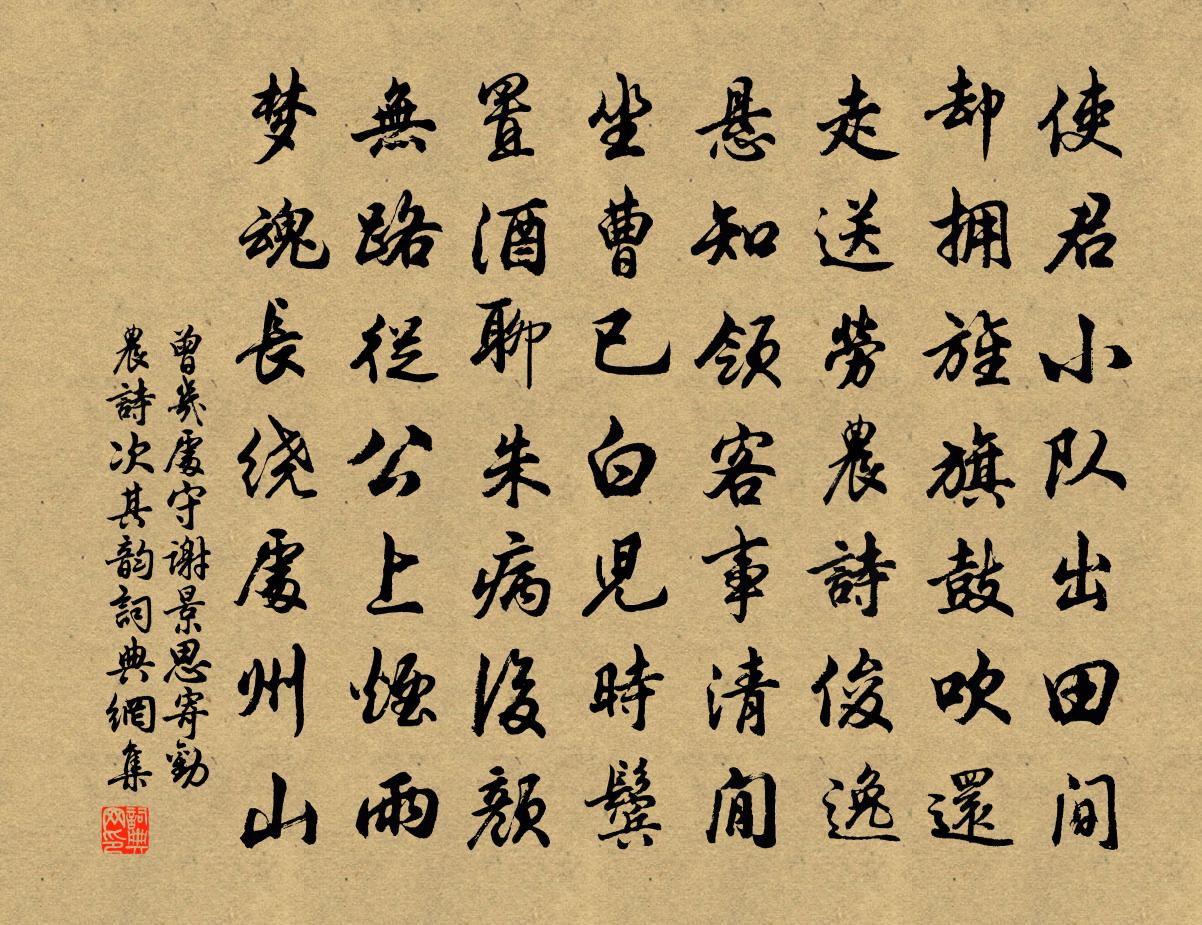 使君小队出田间
却拥旌旗鼓吹還
走送勞農詩俊逸
悬知领客事清閒
坐曹已白兒時鬓
置酒聊朱病後颜
無路從公上煙雨
梦魂長绕處州山
曾幾處守谢景思寄勸
農詩次其韵詞典網集
詞典網印